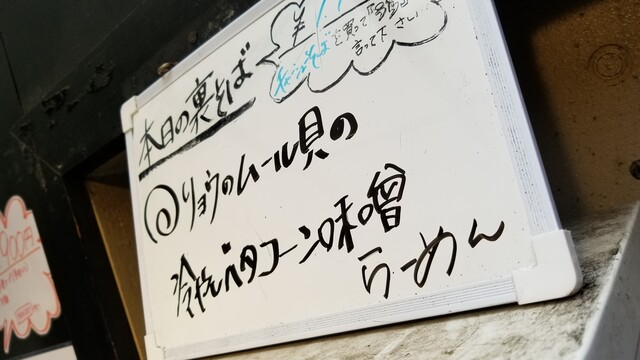 本日の裏そば
そばを買って「裏」
言って下さい
@リョウのムール貝の
冷やしベタコーン味噌
らーめん
900円